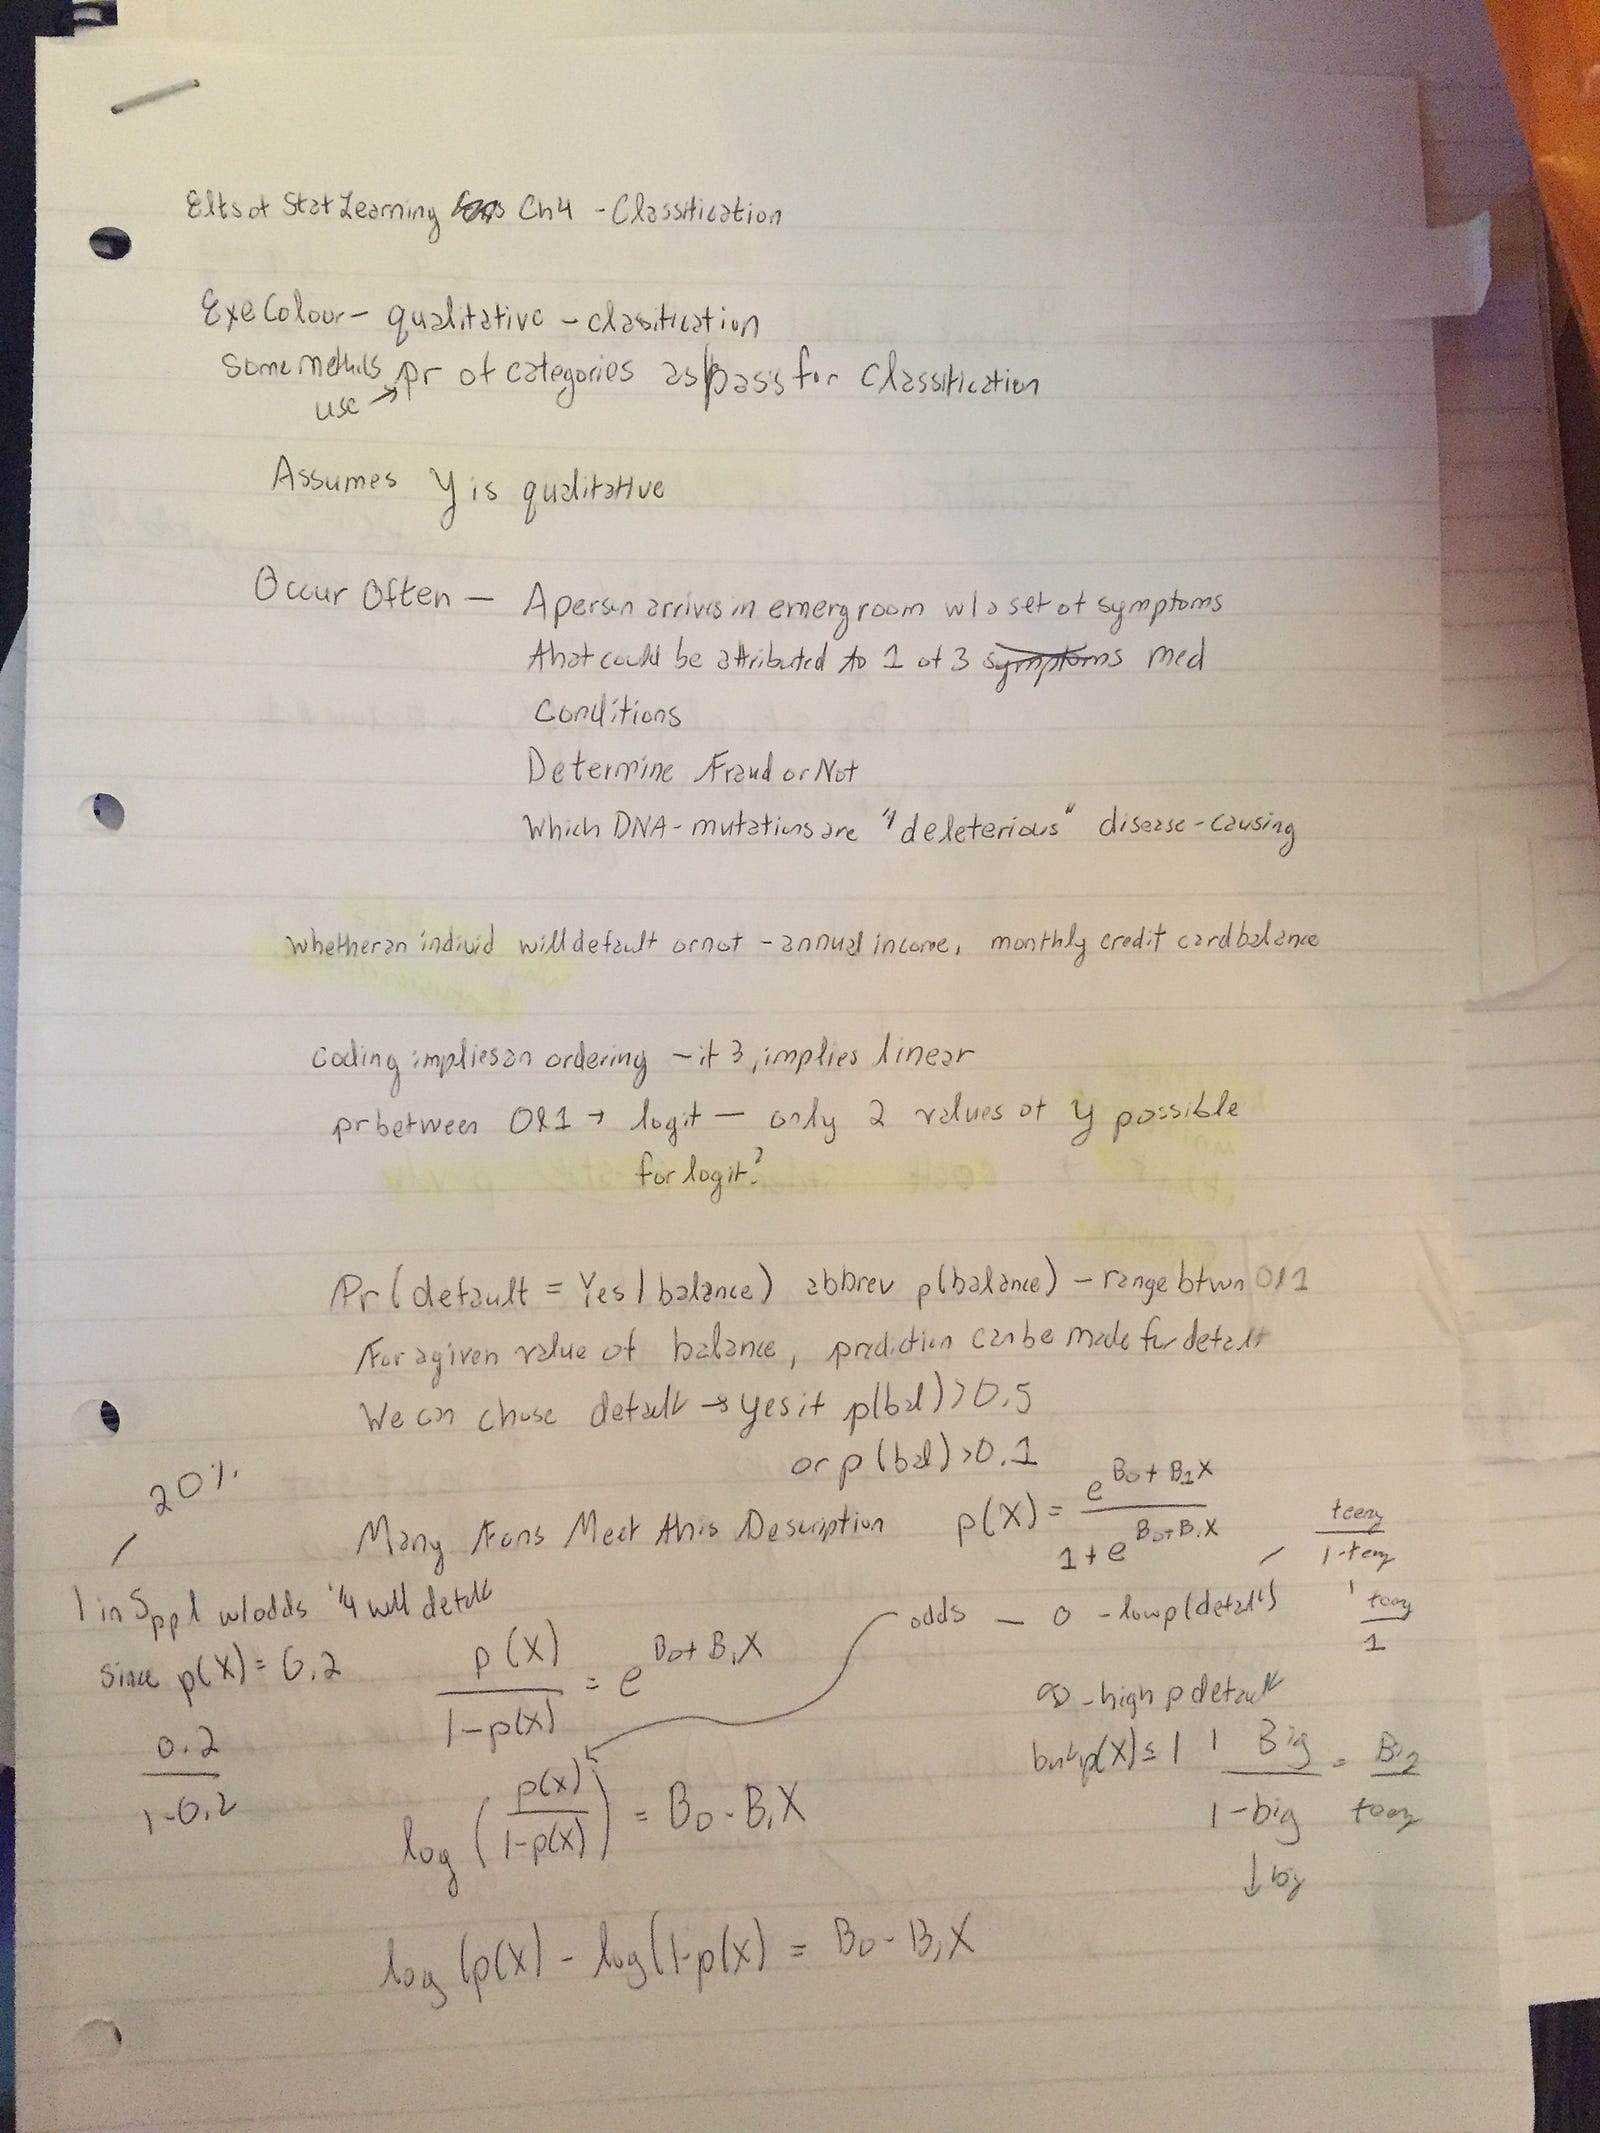 Elts of Stat Learning Ch4 - Classification
Eye Colour - qualitative - clasification
Some methods pr of categories as basis for Classification
use →
Assumes Y is qualitative
Occur Often — A person arrives in emerg room w/ a set of symptoms
that could be attributed to 1 of 3 symptoms med
Conditions
Determine Fraud or Not
Which DNA - mutations are "deleterious" disease-causing
whether an individ will default or not - annual income, monthly credit card balance
Coding implies an ordering - if 3, implies linear
pr between 0&1 → logit — only 2 values of Y possible
for logit?
Pr(default = Yes | balance) abbrev p(balance) - range btwn 0&1
For a given value of balance, prediction can be made for default
We can chose default → yes if p(bal) > 0.5
or p(bal) > 0.1
20%
Many Fcns Meet this Description p(X) = e^(B0 + B1X) / (1 + e^(B0+B1X))
teeny / 1-teeny
1 in 5 ppl w/ odds 1/4 will default
odds — 0 - low p(default) teeny / 1
since p(X) = 0.2
p(X) / (1-p(X)) = e^(B0+B1X)
∞ - high p default
0.2 / (1-0.2)
but p(X) ≤ 1 Big / (1-big) = Big / teeny
log (p(x) / (1-p(x))) = B0 - B1X
↓ by
log (p(X) - log(1-p(x) = B0 - B1X